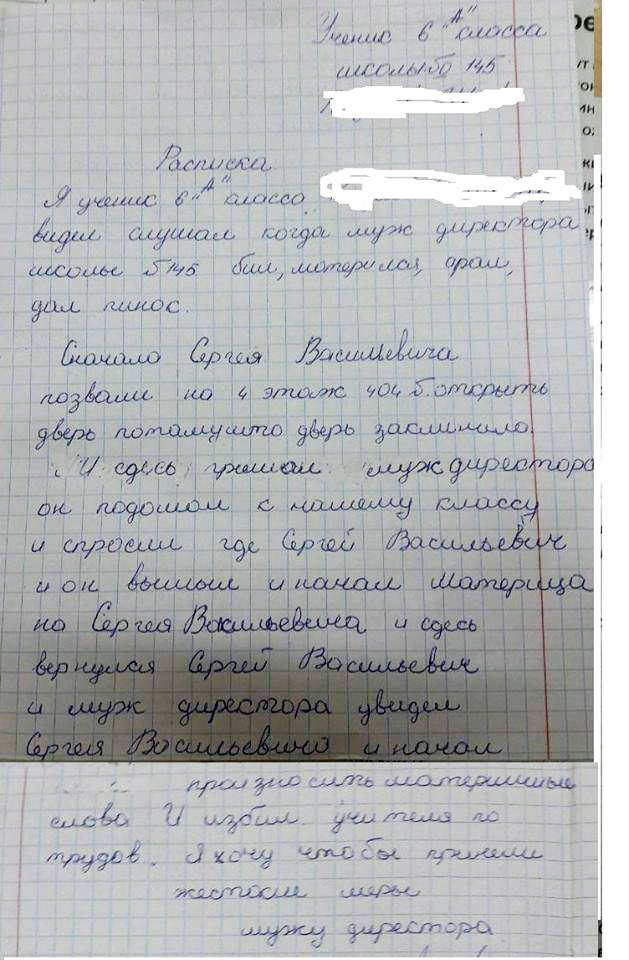 Ученик 6 "А" класса
школы № 145
Расписка.
Я ученик 6 "А" класса
видел слушал когда муж директора
школы №145 бил, матерился, арал,
дал пинок.
Сначала Сергея Васильевича
позвали на 4 этаж 404 б. открыть
дверь потамушто дверь заклинило.
И сдесь пришол муж директора
он подошол к нашему классу
и спросил где Сергей Васильевич
и он вышыл и начал материца
на Сергея Васильевича и сдесь
вернулся Сергей Васильевич
и муж директора увидел
Сергея Васильевича и начал
произносить матершиные
слова И избил учителя по
трудов. Я хочу чтобы приняли
жестокие меры
мужу директора